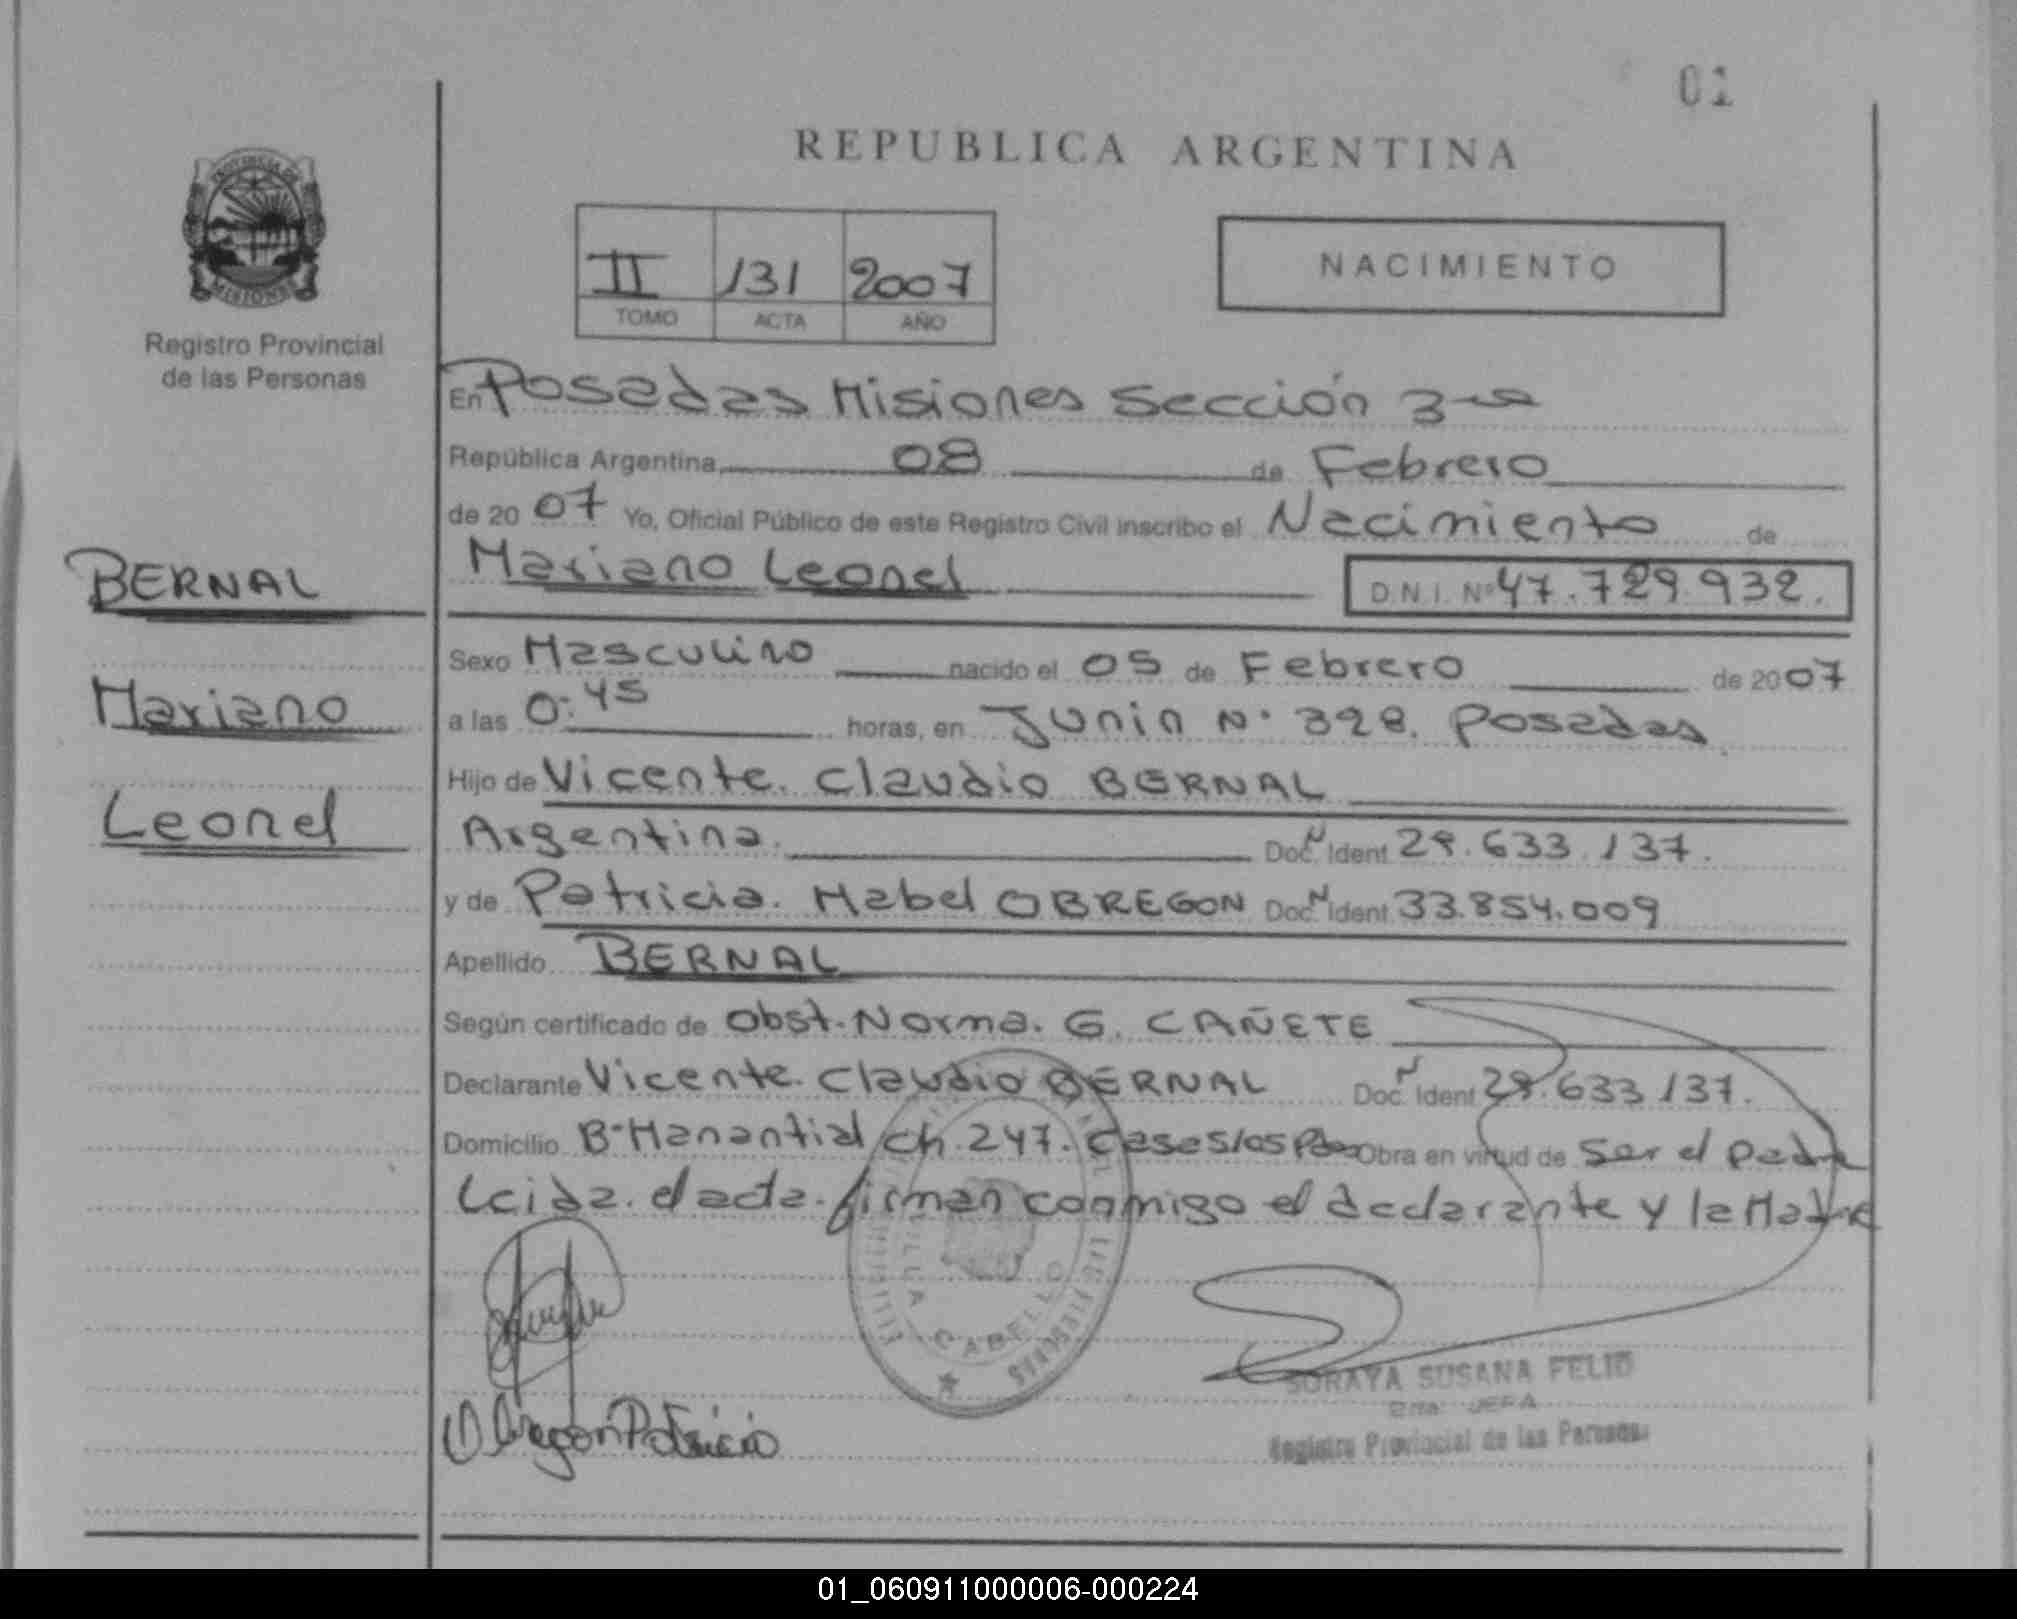 01
REPUBLICA ARGENTINA
PROVINCIA DE
MISIONES
Registro Provincial
de las Personas
II 131 2007
TOMO ACTA AÑO
NACIMIENTO
En Posadas Misiones Sección 3ra
República Argentina, 08 de Febrero
de 2007 Yo, Oficial Público de este Registro Civil inscribo el Nacimiento de
Mariano Leonel D.N.I. Nº 47.729.932.
BERNAL
Mariano
Leonel
Sexo Masculino nacido el 05 de Febrero de 2007
a las 0:45 horas, en Junin N· 328. Posadas
Hijo de Vicente. Claudio BERNAL
Argentina. Doc. N Ident 29.633.137.
y de Patricia. Mabel OBREGON Doc. N Ident 33.854.009
Apellido BERNAL
Según certificado de Obst. Norma. G. CAÑETE
Declarante Vicente. Claudio BERNAL Doc. N Ident 29.633.137.
Domicilio B· Manantial Ch. 247. Casas los Obra en virtud de Ser el Padre
Leida. el acta. firman conmigo el declarante y la Madre
CABELLO
Obregon Patricia
SORAYA SUSANA FELIO
JEFA
Registro Provincial de las Personas
01_060911000006-000224